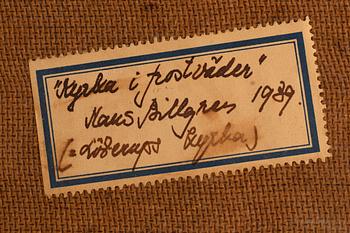 "Kyrka i frostväder"
Hans Billgren 1939.
(= Löderups kyrka)